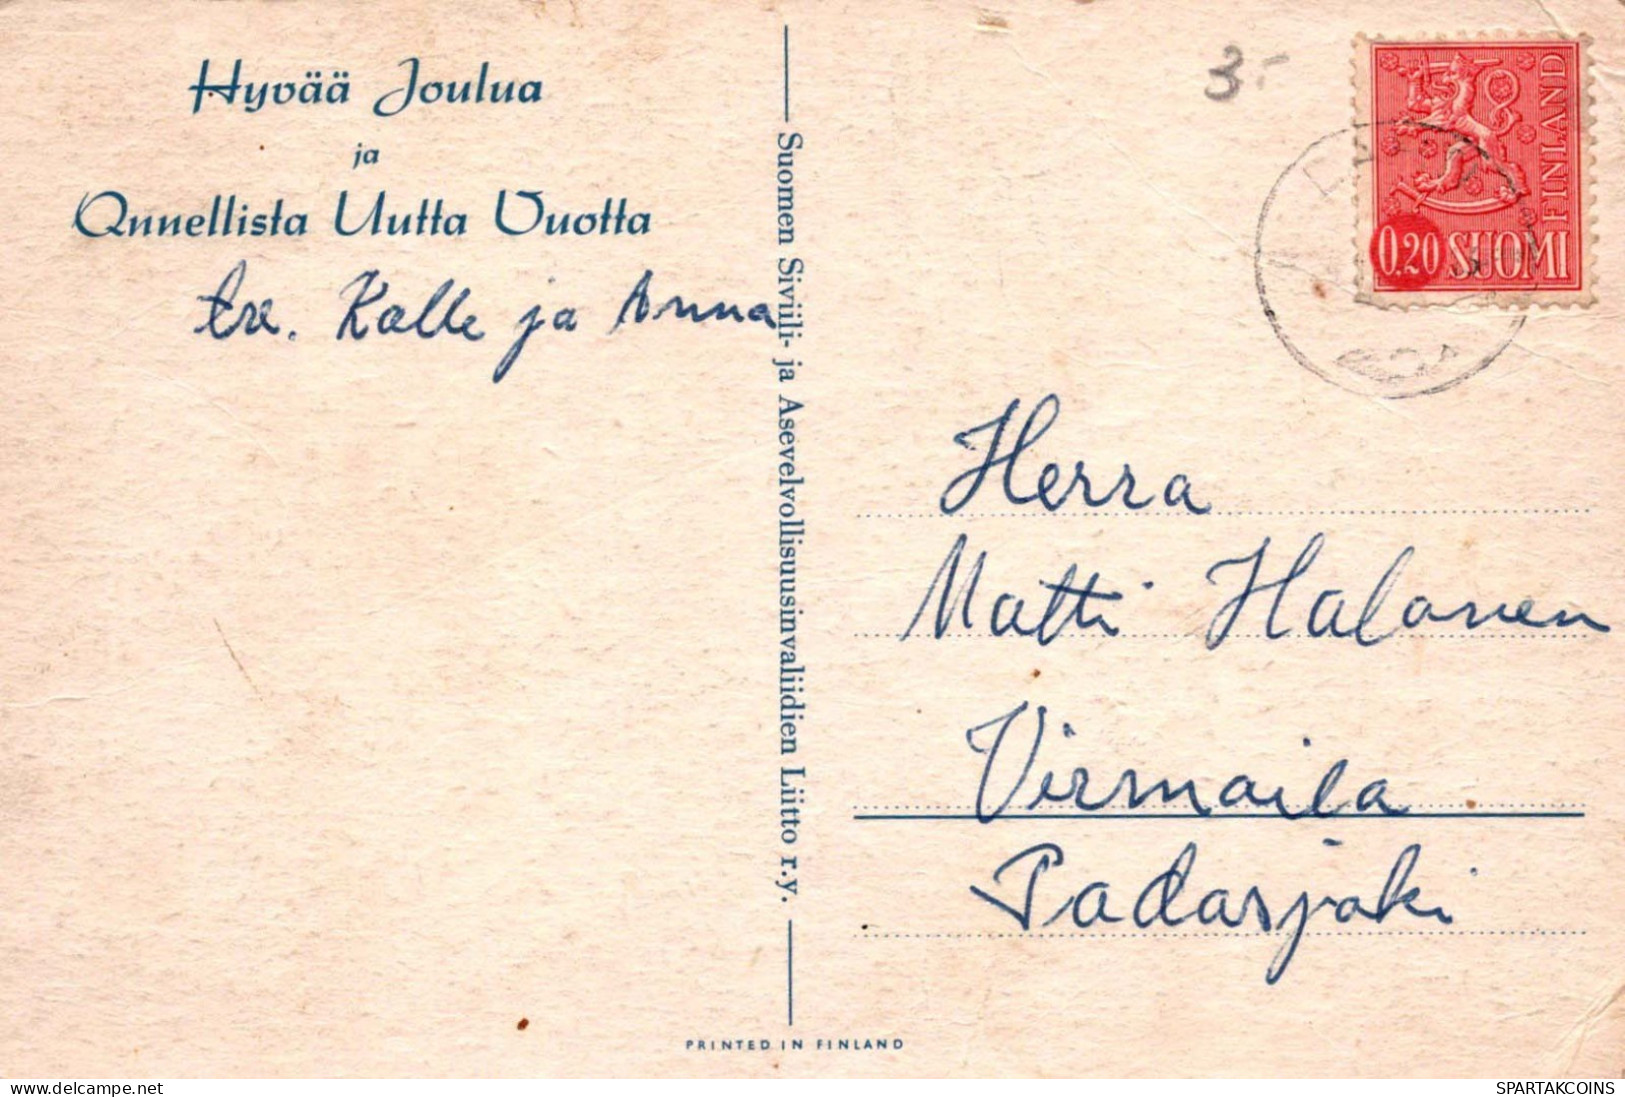 Hyvää Joulua
ja
Onnellista Uutta Vuotta
tre. Kalle ja Anna
Suomen Siviili- ja Asevelvollisuusinvaliidien Liitto r.y.
PRINTED IN FINLAND
3.-
FINLAND
0.20 SUOMI
Herra
Matti Halonen
Virmaila
Padasjoki
delcampe.net
SPARTAKCOINS